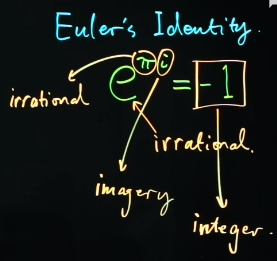 Euler's Identity.
e^πi = -1
irrational
irrational.
imagery
integer.